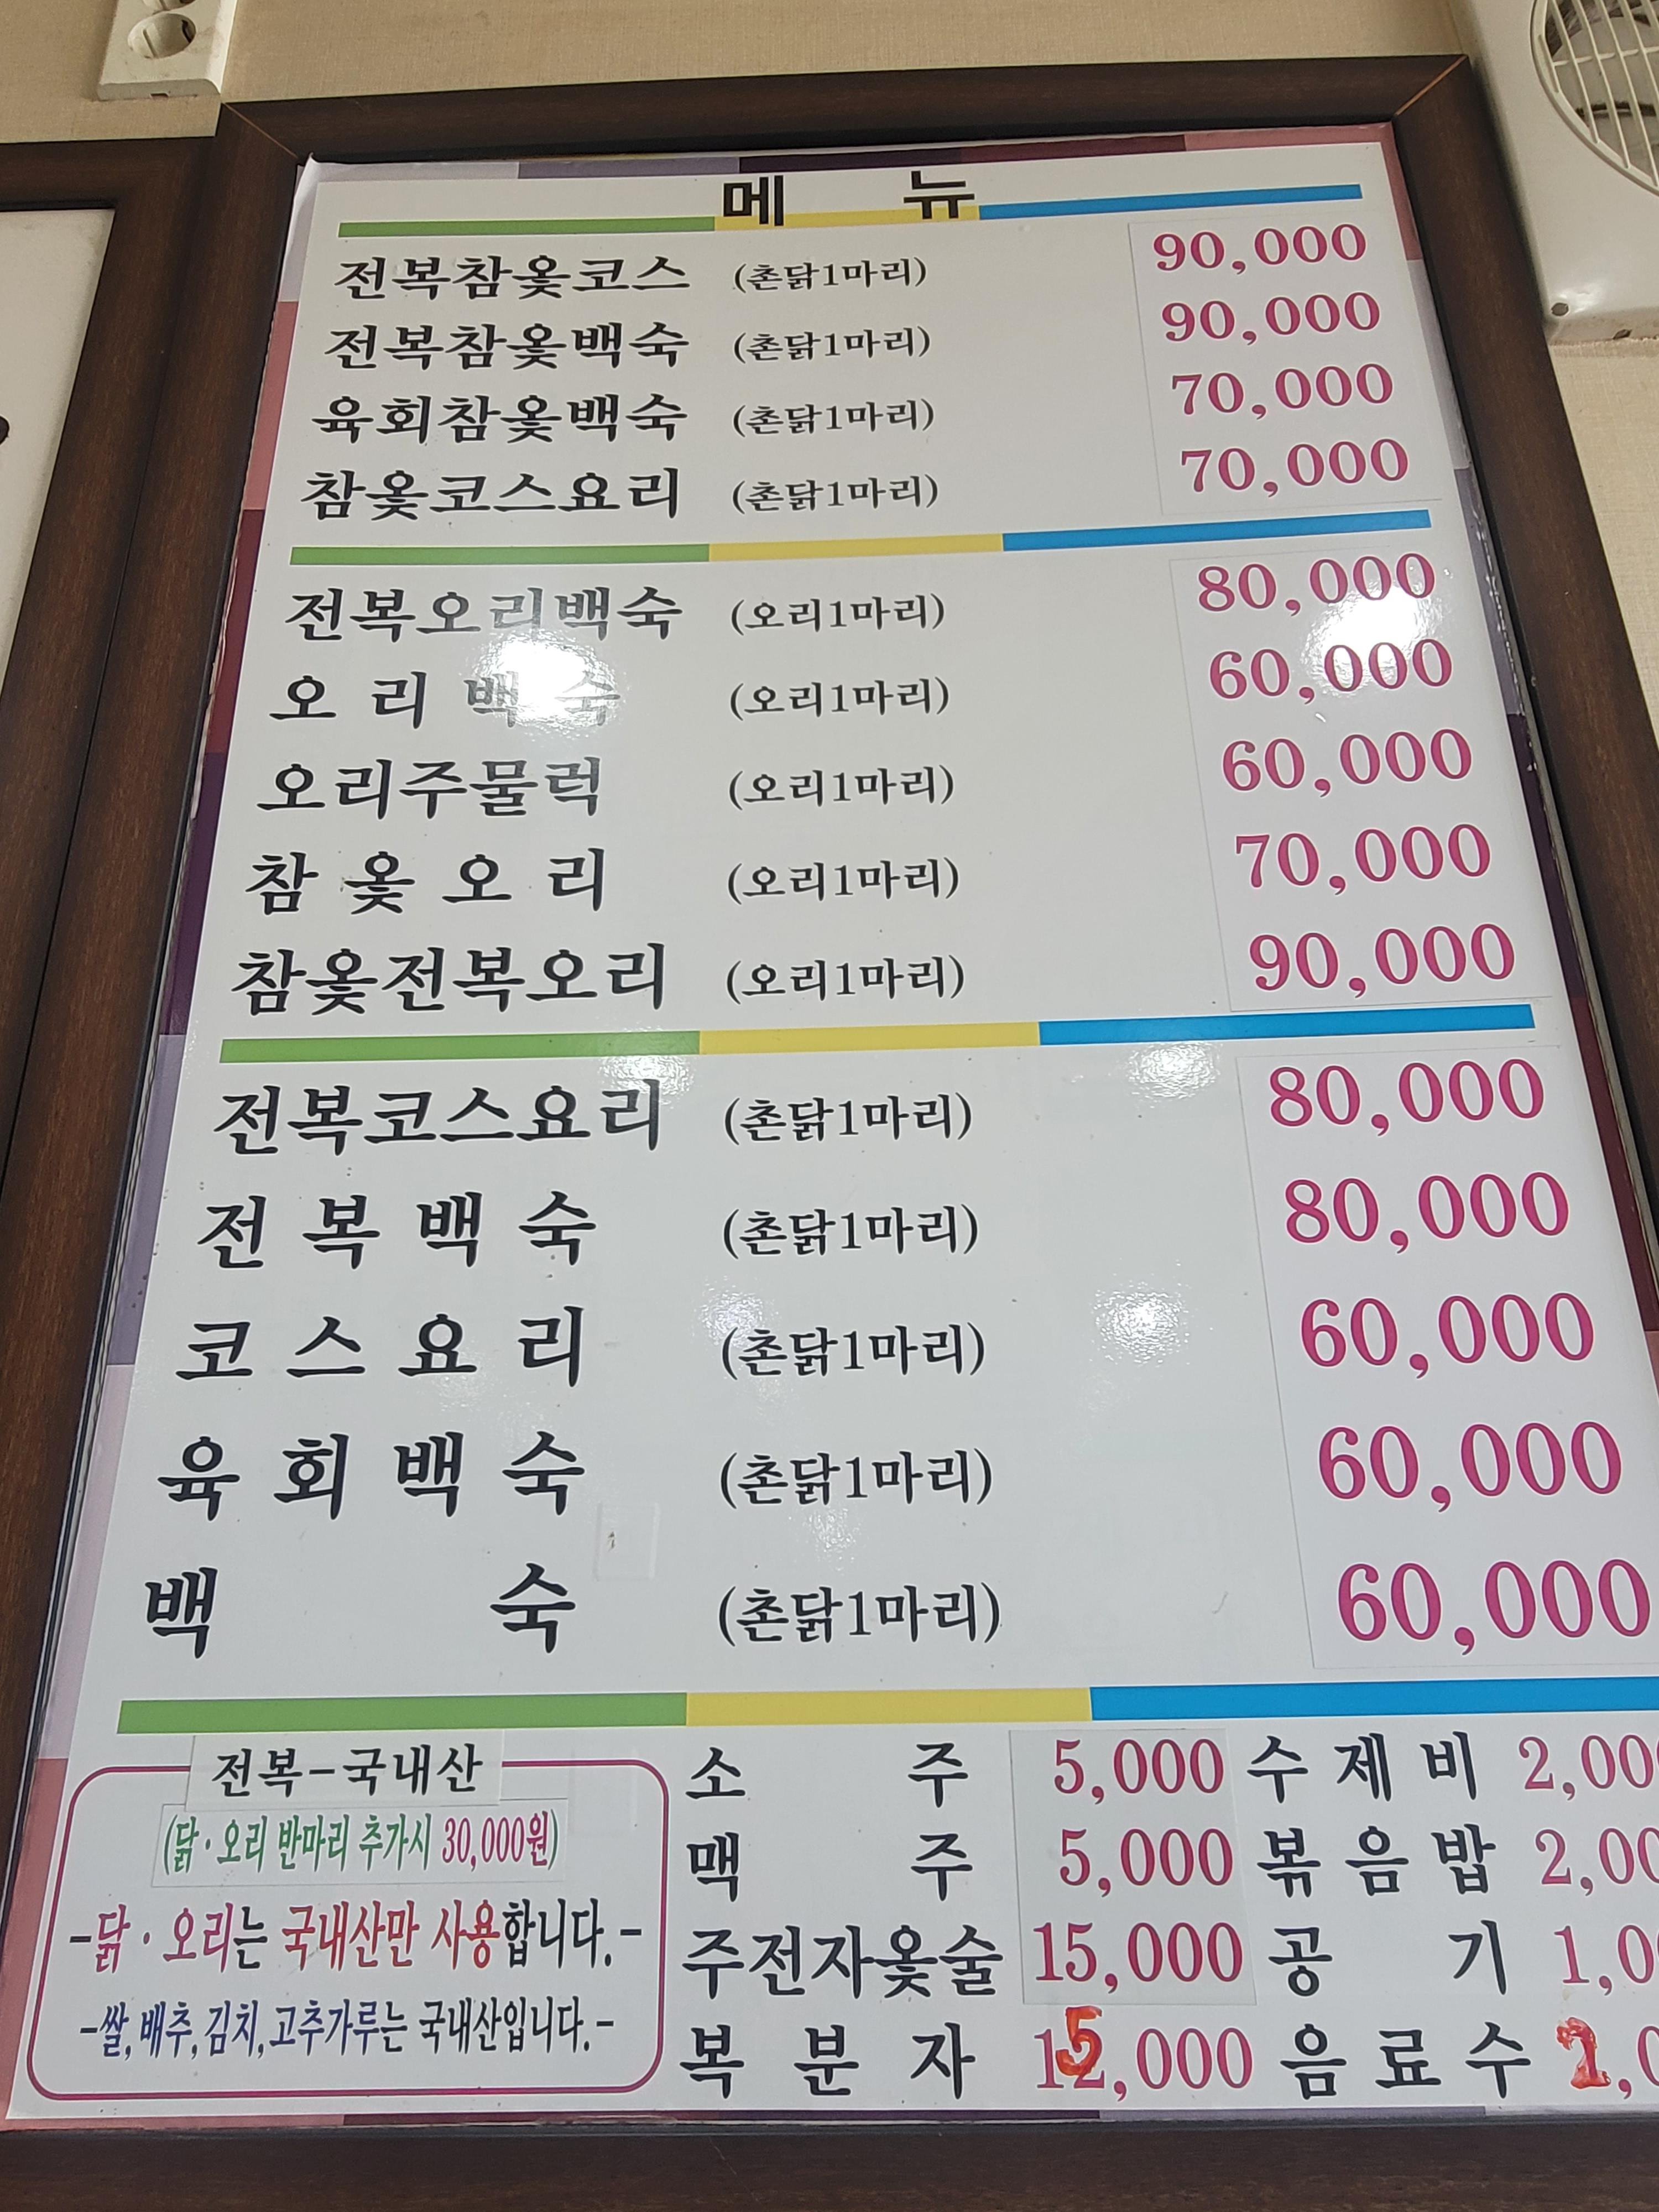 메 뉴
전복참옻코스 (촌닭1마리) 90,000
전복참옻백숙 (촌닭1마리) 90,000
육회참옻백숙 (촌닭1마리) 70,000
참옻코스요리 (촌닭1마리) 70,000
전복오리백숙 (오리1마리) 80,000
오 리 백 숙 (오리1마리) 60,000
오리주물럭 (오리1마리) 60,000
참 옻 오 리 (오리1마리) 70,000
참옻전복오리 (오리1마리) 90,000
전복코스요리 (촌닭1마리) 80,000
전 복 백 숙 (촌닭1마리) 80,000
코 스 요 리 (촌닭1마리) 60,000
육 회 백 숙 (촌닭1마리) 60,000
백 숙 (촌닭1마리) 60,000
전복-국내산
(닭·오리 반마리 추가시 30,000원)
-닭·오리는 국내산만 사용합니다.-
-쌀, 배추, 김치, 고추가루는 국내산입니다.-
소 주 5,000 수 제 비 2,00
맥 주 5,000 볶 음 밥 2,00
주전자옻술 15,000 공 기 1,0
복 분 자 15,000 음 료 수 2,0